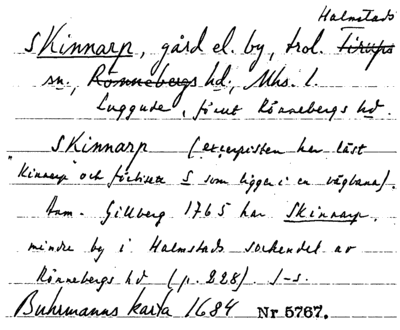 Halmstads
SKinnarp, gård el. by, trol. Tirups
sn, Rönnebergs hd, Mhs. l.
Luggude, förut Rönnebergs hd.
SKinnarp (excerpisten har läst
"Kinnarp" och förbisett S som ligger i en vägbana).
Anm. Gillberg 1765 har Skinnarp,
mindre by i Halmstads sockendel av
Rönnebergs hd (p. 228). J-s.
Buhrmanns karta 1684 Nr 5767.